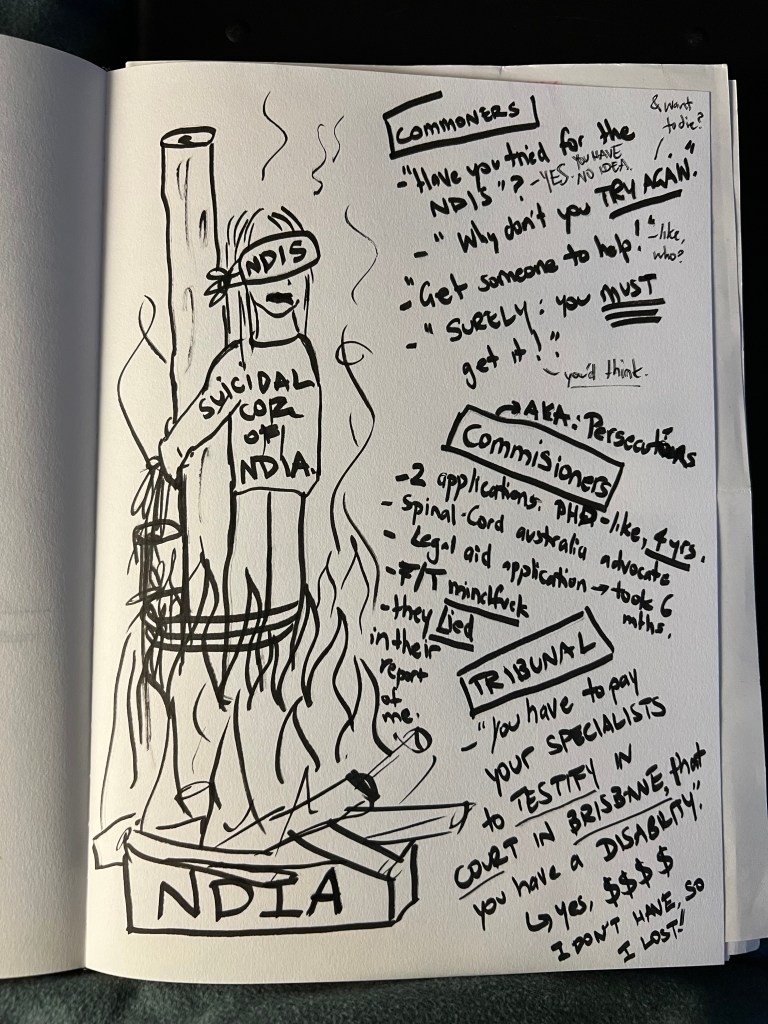 NDIS
SUICIDAL
COZ
OF
NDIA.
NDIA
COMMONERS
- "Have you tried for the
NDIS"? - YES. YOU HAVE
NO IDEA.
& want
to die?
- "Why don't you TRY AGAIN."
- "Get someone to help!" - like,
who?
- "SURELY: you MUST
get it!"
- you'd think.
→ AKA: Persecutors
Commisioners
- 2 applications. PHD-like, 4 yrs.
- Spinal-Cord australia advocate
- Legal aid application → took 6
mths.
- F/T mindfuck
- they Lied
in their
report
of
me.
TRIBUNAL
- "You have to pay
your SPECIALISTS
to TESTIFY IN
COURT IN BRISBANE, that
you have a DISABILITY".
↳ yes, $$$$
I DON'T HAVE, SO
I LOST!!